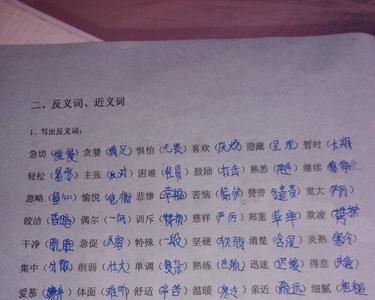 二、反义词、近义词
1、写出反义词:
急切(缓慢) 贪婪(满足) 惧怕(无畏) 喜欢(厌恶) 隐藏(呈现) 暂时(长期)
轻松( ) 主张(反对) 困难(容易) 鼓励(打击) 熟悉( ) 继续( )
忽略( ) 愉悦( ) 悲惨(幸福) 苦恼(愉快) 赞誉(谴责) 宽大(严厉)
皎洁(昏暗) 偶尔( ) 训斥(赞扬) 慈祥(严厉) 郑重(草率) 欺凌( )
干净(肮脏) 急促(从容) 特殊(一般) 坚硬(软弱) 清楚(含混) 炎热(寒冷)
集中(分散) 削弱(壮大) 单调(复杂) 熟练(生疏) 迅速(迟缓) 得意( )
爱慕( ) 体面(难听) 舒适(辛苦) 温暖(寒冷) 亲近(疏远) 细腻(粗糙)